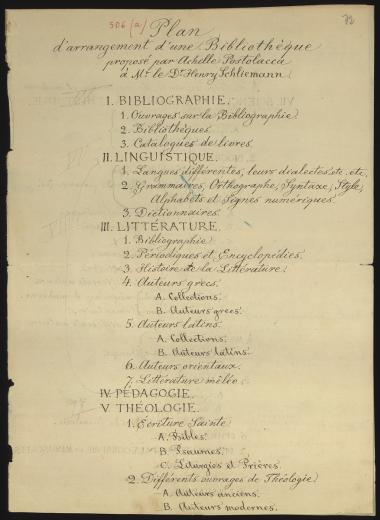 506 (a)
73
Plan
d'arrangement d'une Bibliothèque
proposé par Achille Postolacca
à Mr. le Dr. Henry Schliemann
I. BIBLIOGRAPHIE.
1. Ouvrages sur la Bibliographie.
2. Bibliothèques.
3. Catalogues de livres.
II. LINGUISTIQUE.
1. Langues différentes, leurs dialectes etc. etc.
2. Grammaires, Orthographe, Syntaxe, Style,
Alphabets et Signes numériques.
3. Dictionnaires.
III. LITTÉRATURE.
1. Bibliographie.
2. Périodiques et Encyclopédies.
3. Histoire de la Littérature.
4. Auteurs grecs.
A. Collections.
B. Auteurs grecs.
5. Auteurs latins.
A. Collections.
B. Auteurs latins.
6. Auteurs orientaux.
7. Littérature mêlée.
IV. PÉDAGOGIE.
V. THÉOLOGIE.
1. Ecriture Sainte.
A. Bibles.
B. Psaumes.
C. Liturgies et Prières.
2. Différents ouvrages de Théologie.
A. Auteurs anciens.
B. Auteurs modernes.